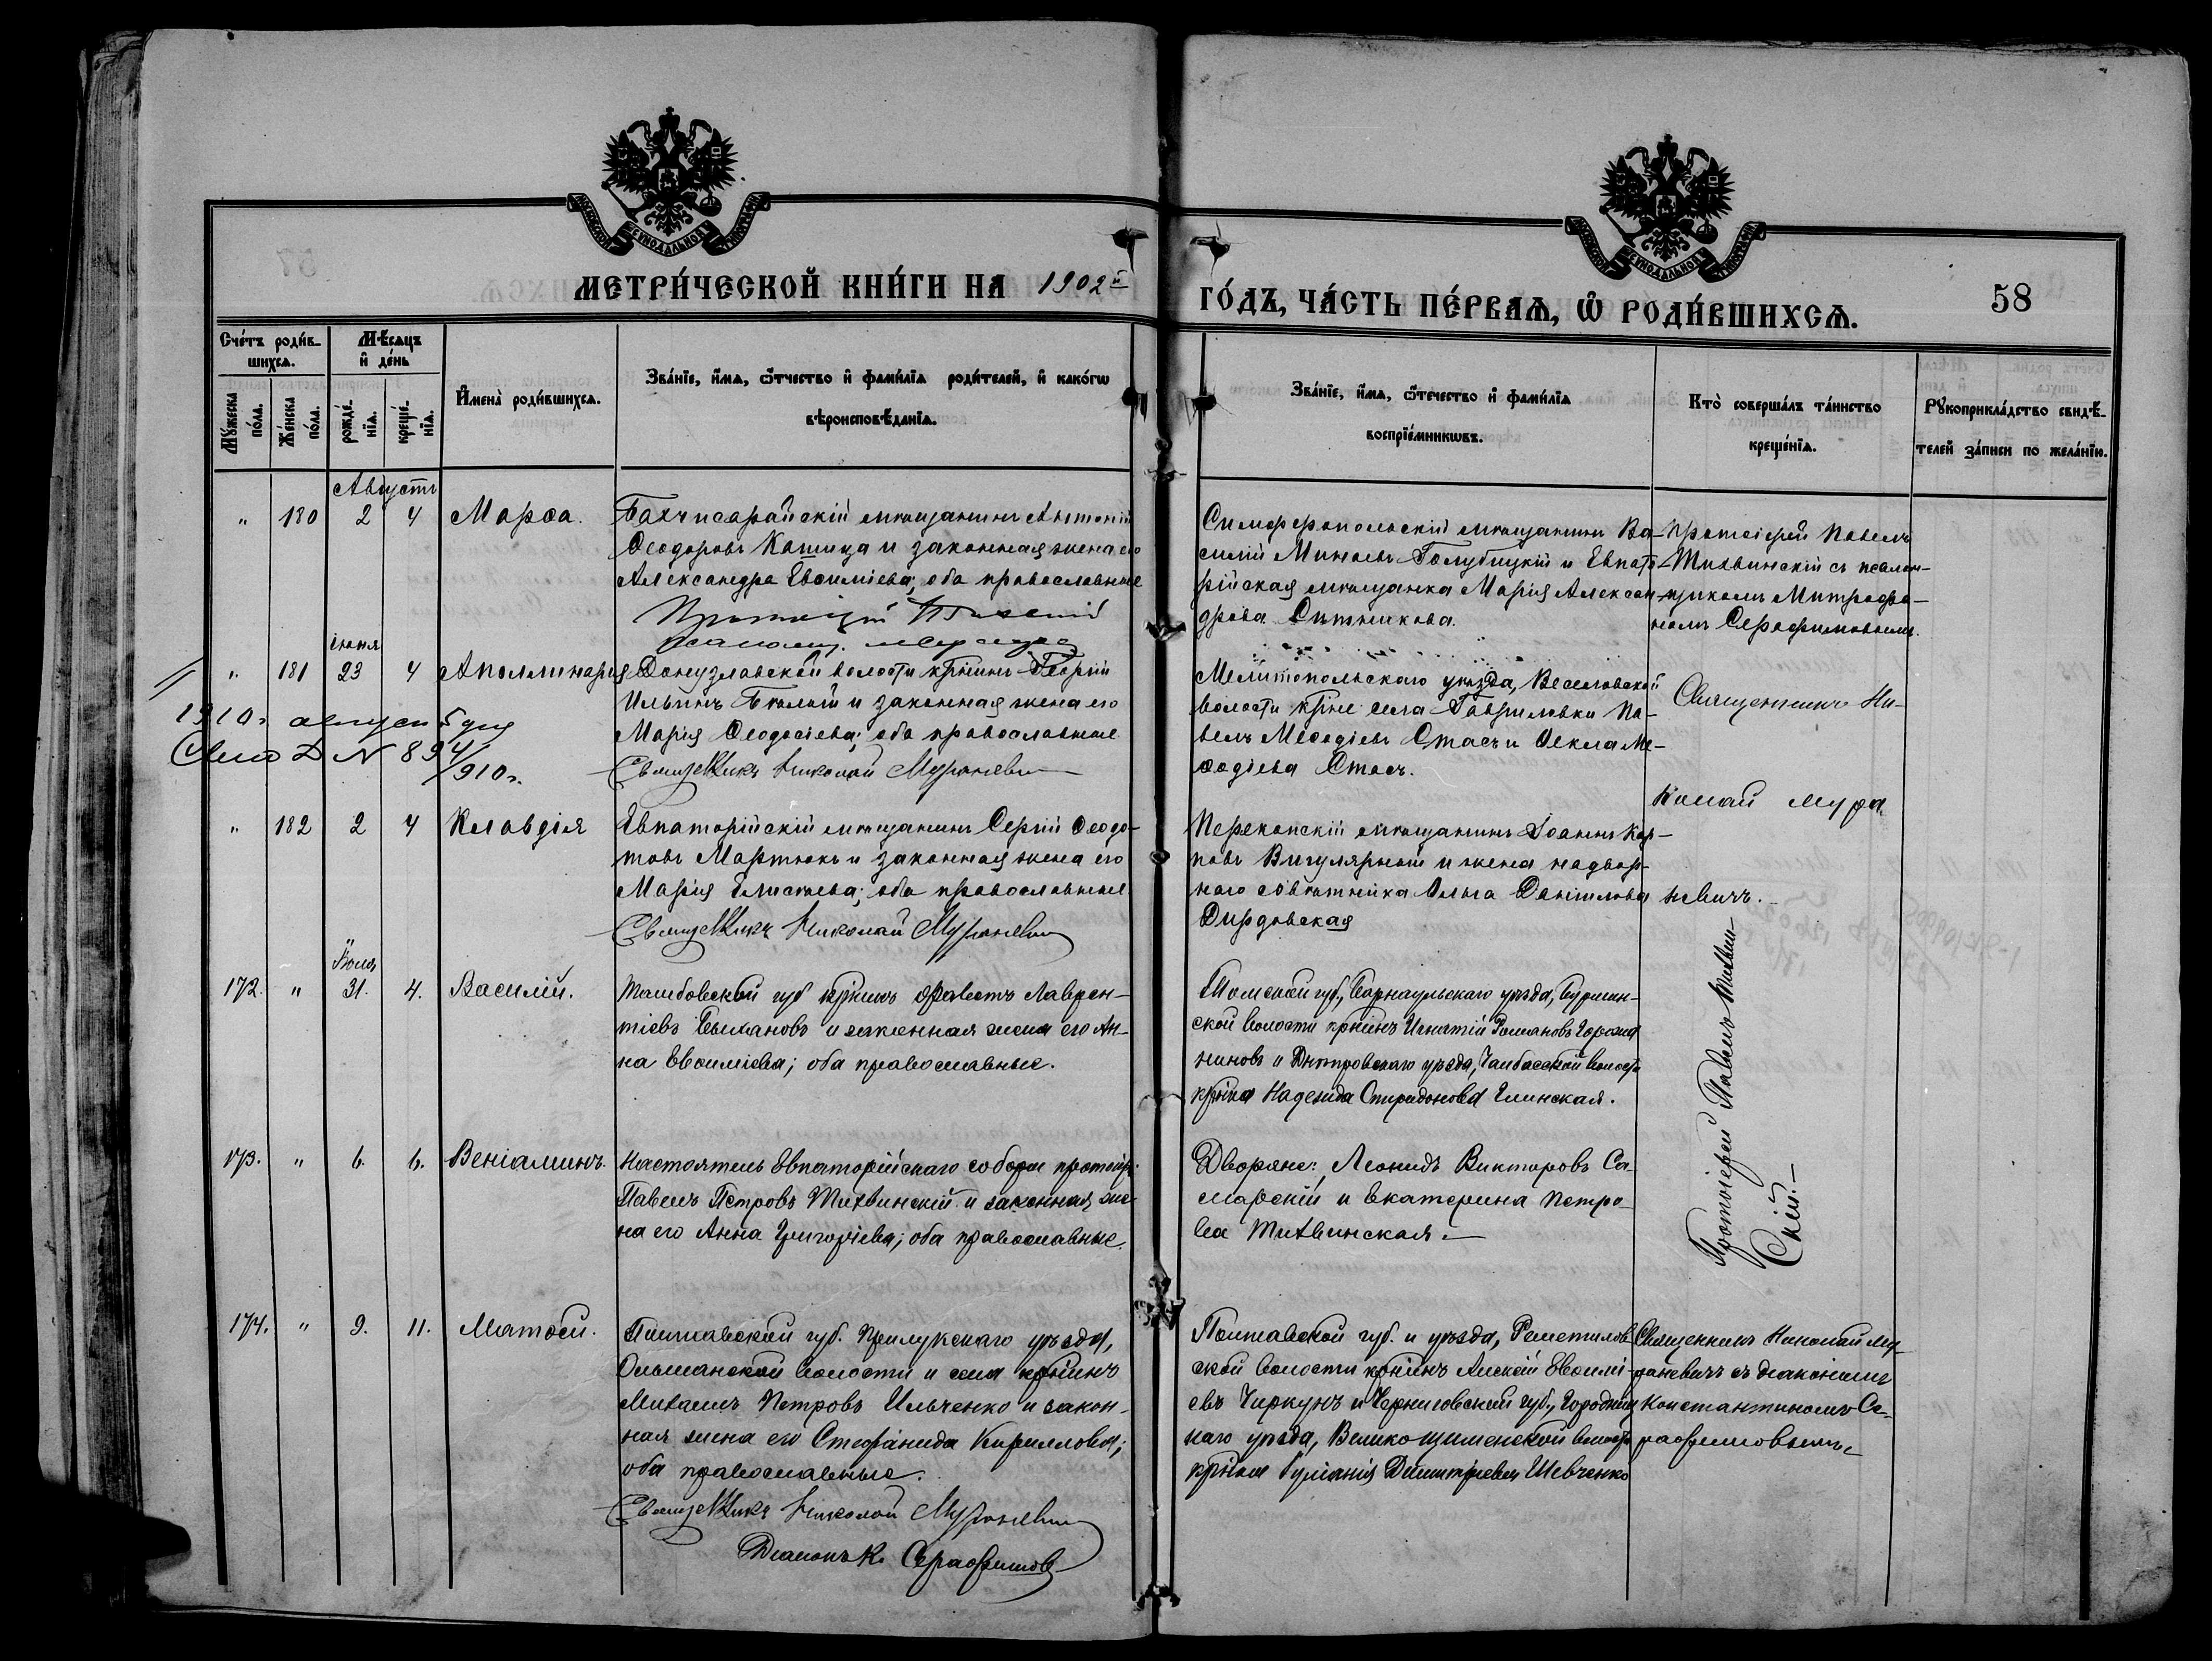 МЕТРИ́ЧЕСКОЙ КНИ́ГИ НА 1902й
ГО́ДЪ, ЧА́СТЬ ПЕ́РВАѦ, Ѡ РОДИ́ВШИХСѦ.
58
Сче́тъ роди́в-
шихсѧ.
Мѣ́сѧцъ
и҆ де́нь
Мꙋ́жеска
по́ла.
Же́нска
по́ла.
рожде́-
нїѧ.
креще́-
нїѧ.
И҆мена̀ роди́вшихсѧ.
Зва́нїе, и҆́мѧ, ѻ҆́тчество и҆ фами́лїѧ роди́телей, и҆ како́гѡ
вѣроисповѣ́данїѧ.
Зва́нїе, и҆́мѧ, ѻ҆́течество и҆ фами́лїѧ
воспрїе́мникѡвъ.
Кто̀ соверша́лъ та́инство
креще́нїѧ.
Рꙋкоприкла́дство свидѣ́-
телей за́писи по жела́нїю.
Августъ
" 180 2 4 Марѳа.
Бахчисарайскій мѣщанинъ Антоній
Ѳеодоровъ Кашица и законная жена его
Александра Евѳиміева; оба православные
Симферопольскій мѣщанинъ Ва-
силій Минаевъ Голубицкій и Евпато-
рійская мѣщанка Марія Алексан-
дрова Ситникова.
Протоіерей Павелъ
Тихвинскій съ псалом-
щикомъ Митрофа-
номъ Серафимовымъ.
іюля
" 181 23 4 Аполлинарія
Донузлавской волости крнинъ Георгій
Ильинъ Бѣлый и законная жена его
Марія Ѳеодосіева; оба православные
Священникъ Николай Мураневичъ
1910г. август 5 дня
N 894/910г.
Мелитопольскаго уѣзда, Веселовской
волости крне села Гавриловки Па-
велъ Меѳодіевъ Стасъ и Ѳекла Ме-
ѳодіева Стасъ.
Священникъ Ни-
колай Мура
невичъ.
" 182 2 4 Клавдія
Евпаторійскій мѣщанинъ Сергій Ѳеодо-
товъ Мартюкъ и законная жена его
Марія; оба православные
Священникъ Николай Мураневичъ
Перекопскій мѣщанинъ Іоаннъ Кар-
повъ Вигулярный и жена надвор-
наго совѣтника Ольга Данилова
Дирдовская
Іюля
172. " 31. 4. Василій.
Тамбовской губ крнинъ Ѳавстъ Лаврен-
тіевъ и законная жена его Ан-
на Евѳиміева; оба православные.
Томской губ., Барнаульскаго уѣзда, Бурлин-
ской волости крнинъ Игнатій Романовъ
и Днѣпровскаго уѣзда, Чалбасской волости
крнка Надежда Спиридонова Глинская.
Протоіерей Павелъ Тихвин-
скій.
173. " 6. 6. Веніаминъ.
Настоятель Евпаторійскаго собора протоіер.
Павелъ Петровъ Тихвинскій и законная же-
на его Анна Григоріева; оба православные.
Дворяне: Леонидъ Викторовъ Са-
марскій и Екатерина Петро-
ва Тихвинская.
174. " 9. 11. Матѳей.
Полтавской губ. Прилукскаго уѣзда,
Ольшанской волости и села крнинъ
Михаилъ Петровъ Ильченко и закон-
ная жена его Стефанида Кириллова;
оба православные.
Священникъ Николай Мураневичъ
Діаконъ К. Серафимовъ
Полтавской губ. и уѣзда, Решетилов-
ской волости крнинъ Алексій Евѳимі-
евъ Чиркунъ и Черниговской губ., Городниц
каго уѣзда, Великощименской волости
крнка Іуліанія Димитріева Шевченко
Священникъ Николай Му-
раневичъ съ діакономъ
Константиномъ Се-
рафимовымъ.